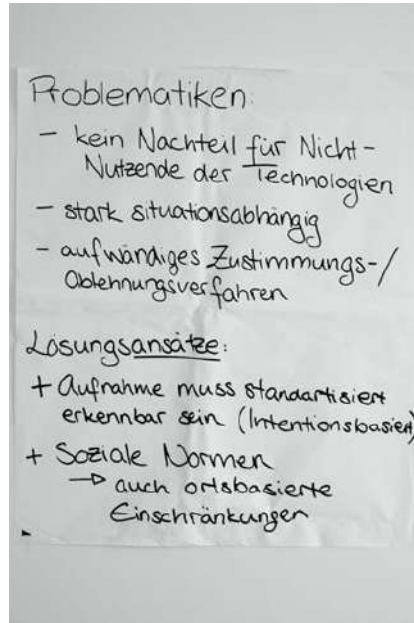 Problematiken:
- kein Nachteil für Nicht-
Nutzende der Technologien
- stark situationsabhängig
- aufwändiges Zustimmungs-/
Ablehnungsverfahren
Lösungsansätze:
+ Aufnahme muss standartisiert
erkennbar sein (Intentionsbasiert)
+ Soziale Normen
→ auch ortsbasierte
Einschränkungen